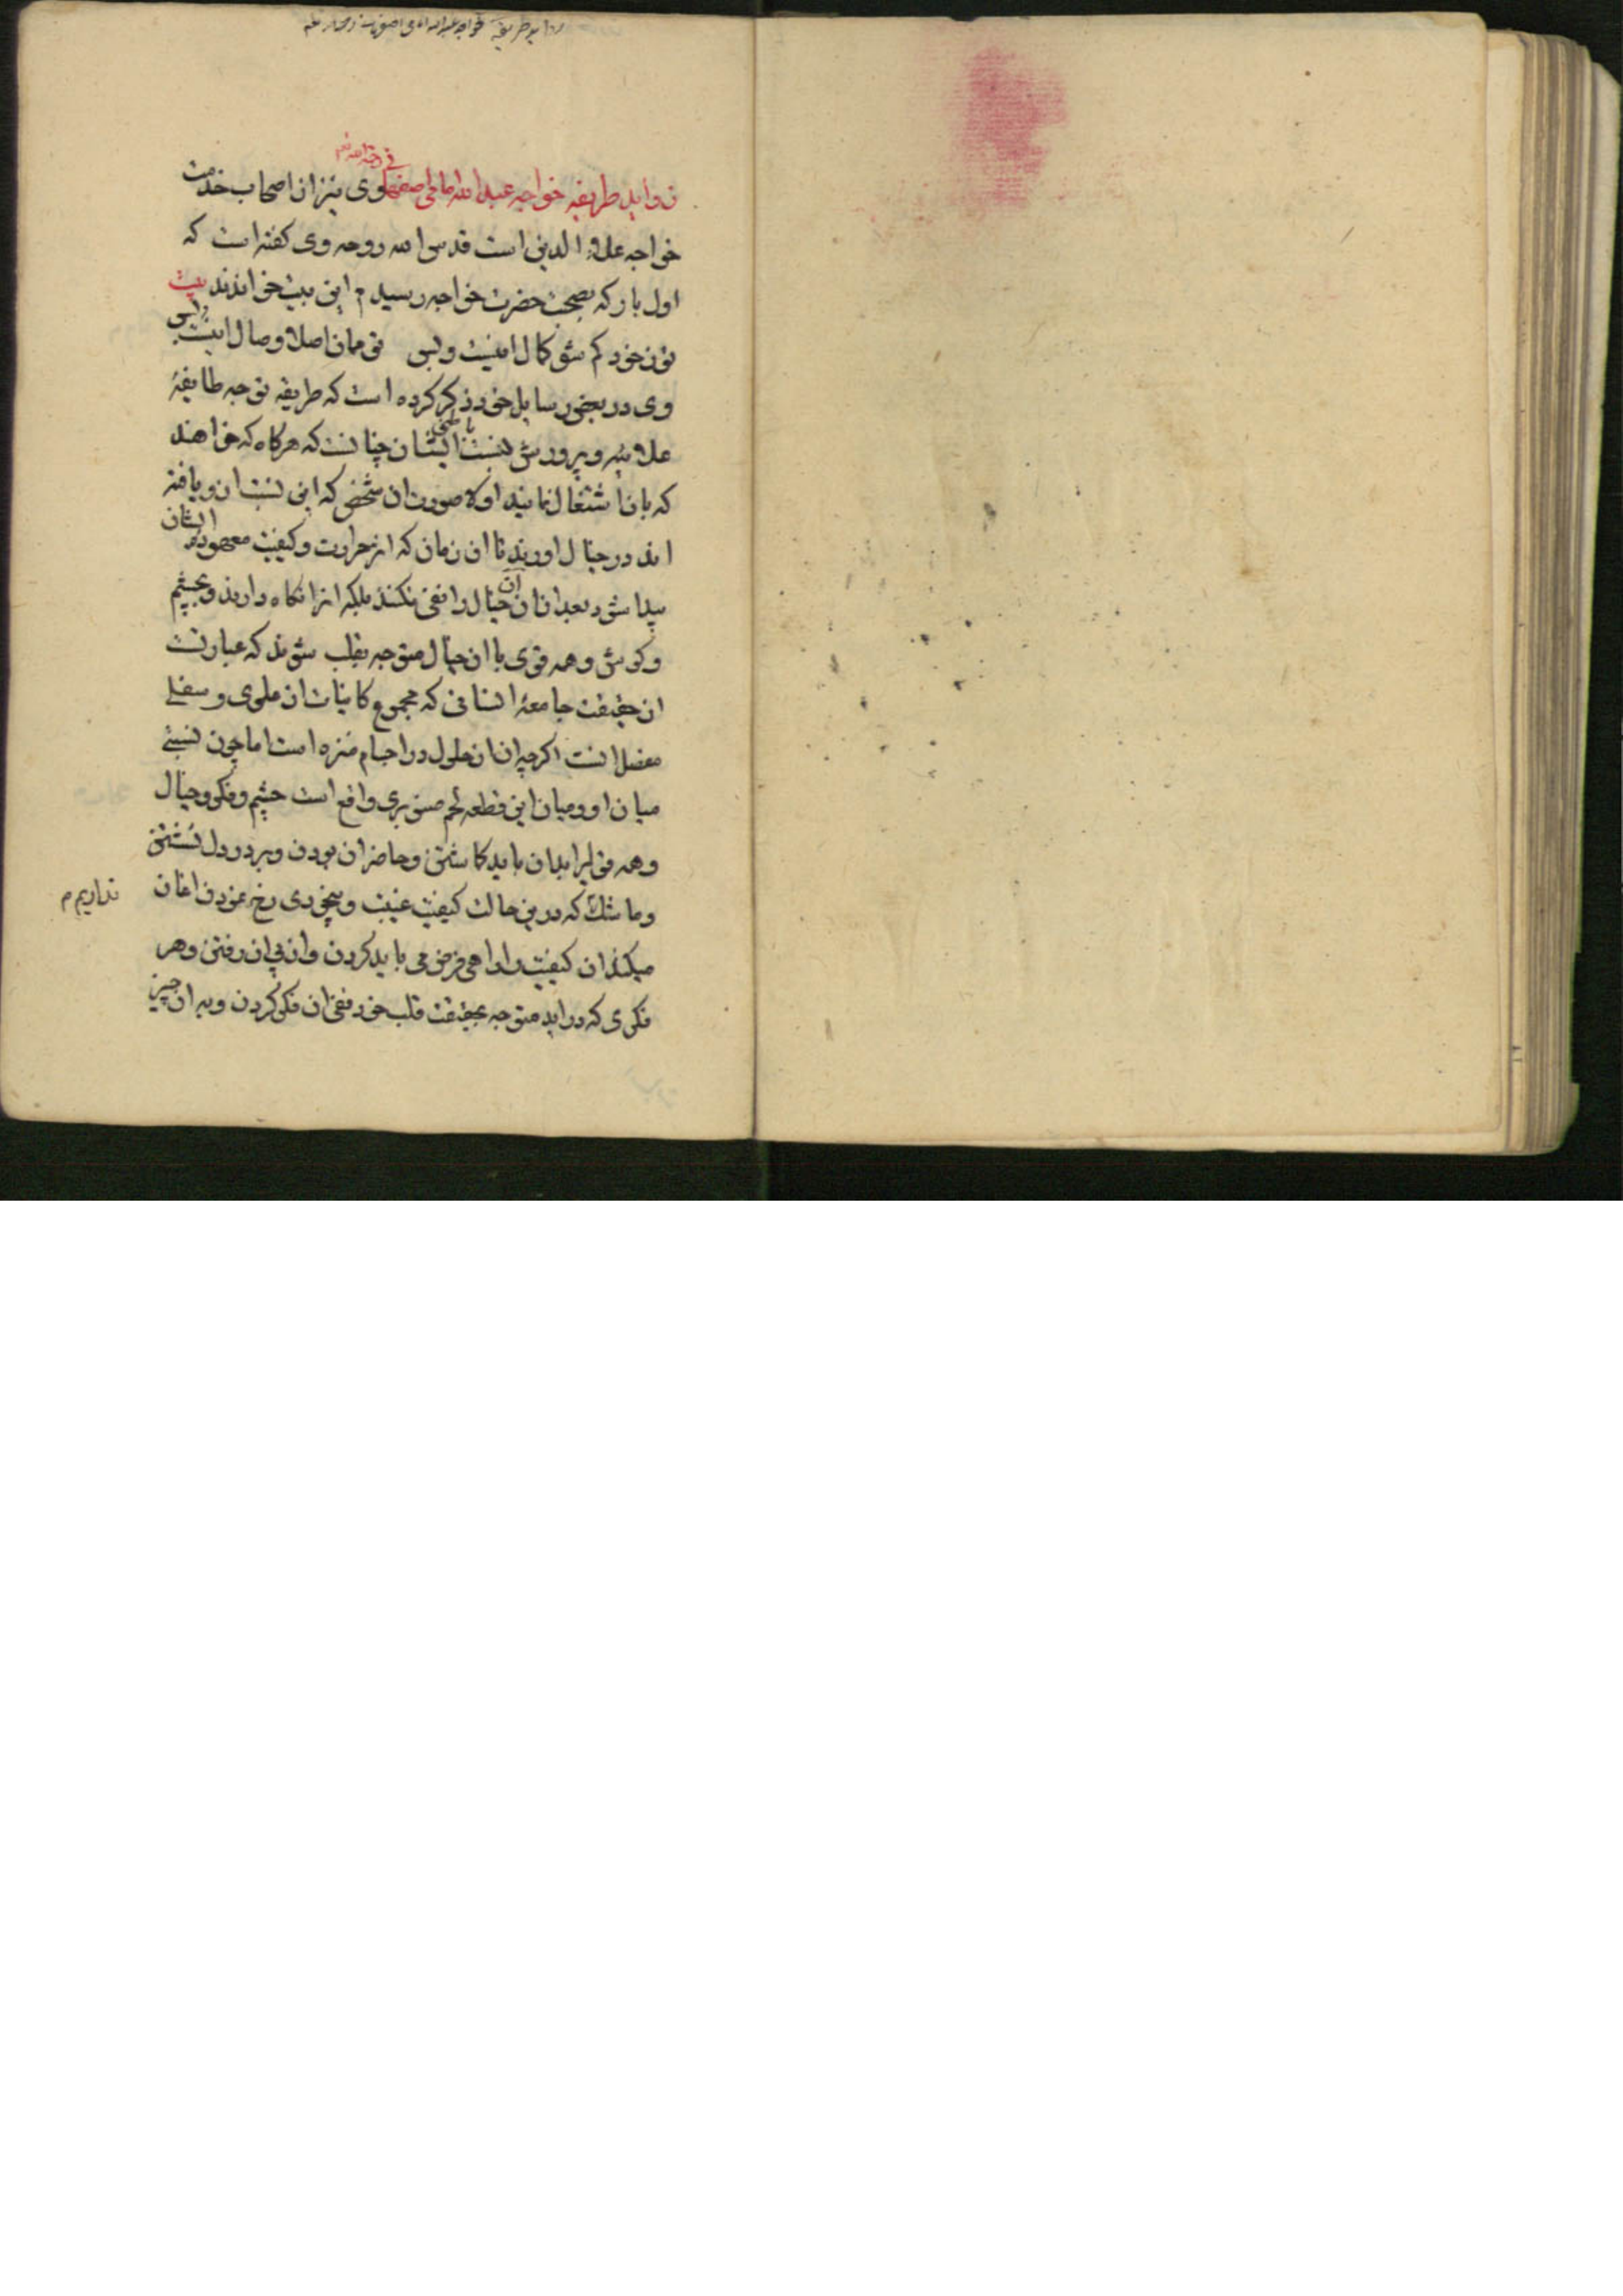 فواید طریقه خواجه عبد الله امامی اصفهانی
فواید طریقه خواجه عبد الله امامی اصفهانی وی نیز از اصحاب خدمت
خواجه علاء الدین است قدس الله روحه وی کفته است که
اول بار که بصحبت حضرت خواجه رسیدم این بیت خواندند بیت
تو ز خود کم شو کمال اینست وبس تو ممان اصلا وصال اینست وبس
وی در بعضی رسایل خود ذکر کرده است که طریقه توجه طایفهٔ
علائیه و پرورش نسبت باطنی ایشان چنانست که هرکاه که خواهند
که بان اشتغال نمایند اولا صورت ان شخصی که این نسبت ازو یافته
اند در خیال اورند تا ان زمان که اثر حرارت و کیفیت معهوده ایشان
پیدا شود بعد ازان ان خیال را نفی نکنند بلکه انرا نکاه دارند و بچشم
و کوش و همه قوی با ان خیال متوجه بقلب شوند که عبارتست
از حقیقت جامعهٔ انسانی که مجموع کاینات از علوی و سفلی
مفصل انست اکرچه ان از حلول در اجسام منزه است اما چون نسبتی
میان او و میان این قطعه لحم صنوبری واقع است چشم و فکر و خیال
و همه قوی را بدان باید کاشتن و حاضر ان بودن و بر در دل نشستن
و ما شک که درین حالت کیفیت غیبت و بیخودی رخ نمودن اغاز
نداریم
میکند ان کیفیت را راهی فرض می باید کردن و از پی ان رفتن و هر
فکری که دراید متوجه بحقیقت قلب خود نفی ان فکر کردن و به ان چیز